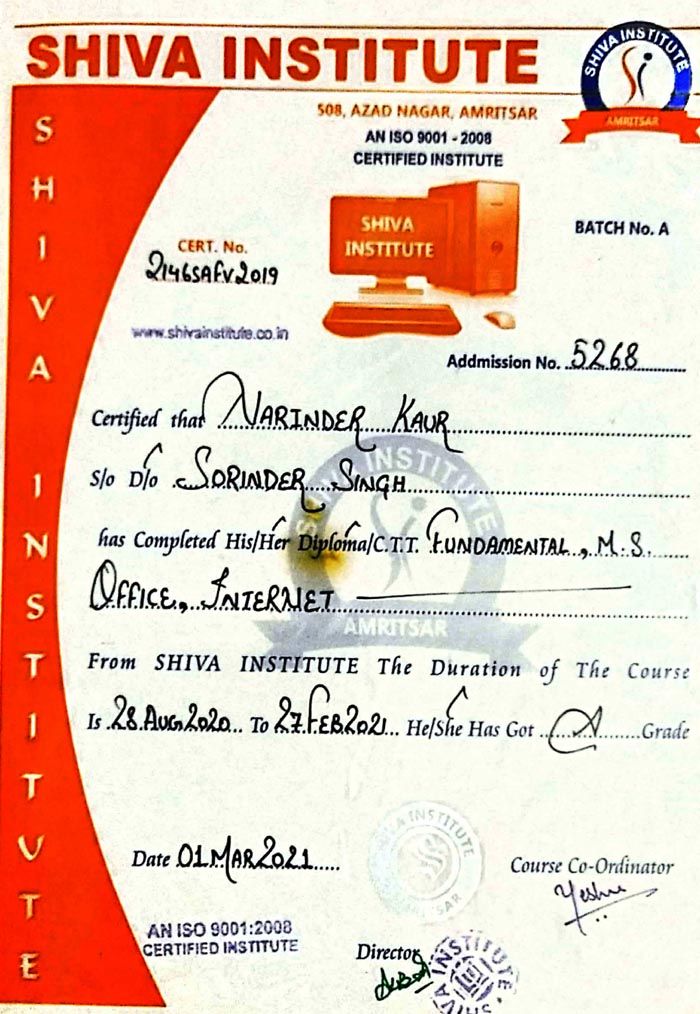 SHIVA INSTITUTE
SHIVA INSTITUTE
AMRITSAR
508, AZAD NAGAR, AMRITSAR
AN ISO 9001 - 2008
CERTIFIED INSTITUTE
SHIVA INSTITUTE
SHIVA
INSTITUTE
BATCH No. A
CERT. No.
2146SAFV2019
www.shivainstitute.co.in
Addmission No. 5268
Certified that NARINDER KAUR
S/o D/o SORINDER SINGH
has Completed His/Her Diploma/C.T.T. FUNDAMENTAL, M.S.
OFFICE, INTERNET
SHIVA INSTITUTE
AMRITSAR
From SHIVA INSTITUTE The Duration of The Course
Is 28 AUG 2020 To 27 FEB 2021 He/She Has Got A Grade
Date 01 MAR 2021
Course Co-Ordinator
Yeshu
AN ISO 9001:2008
CERTIFIED INSTITUTE
Director
SHIVA INSTITUTE